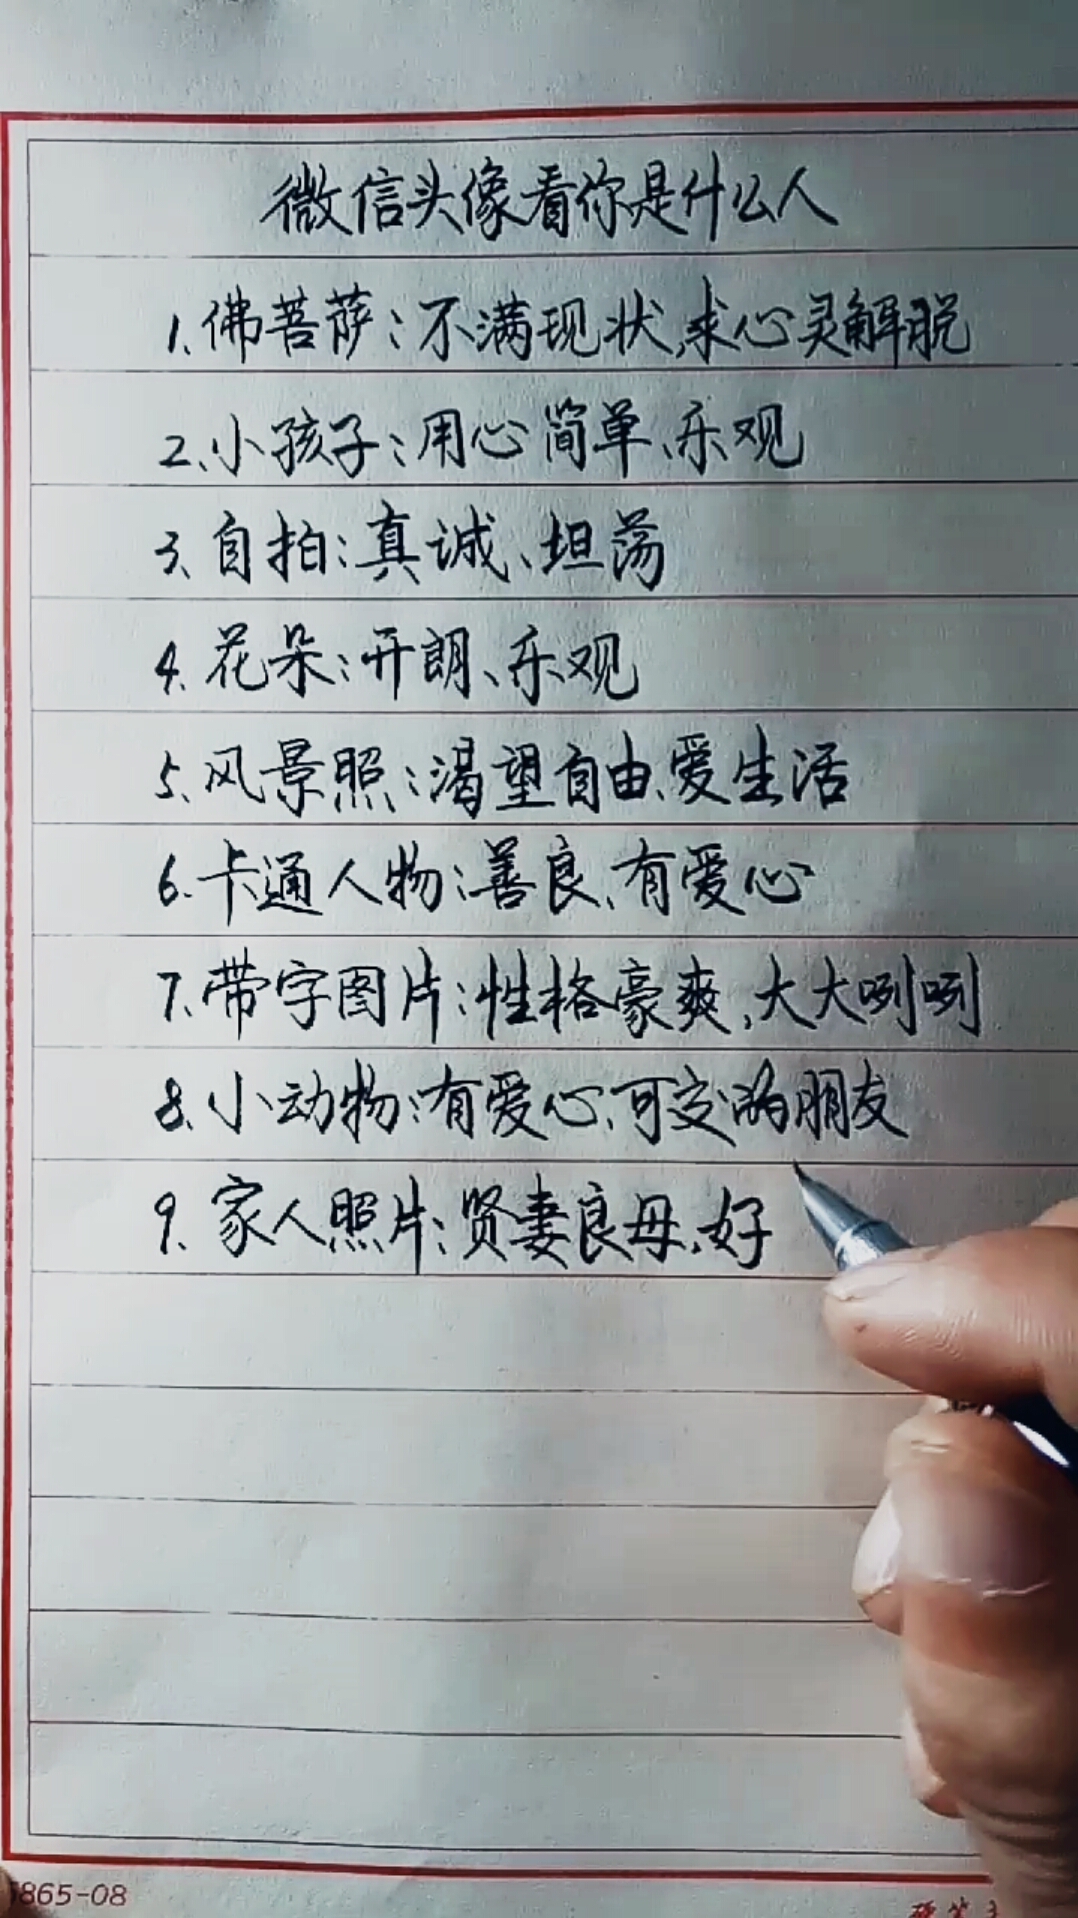 微信头像看你是什么人
1、佛菩萨：不满现状,求心灵解脱
2、小孩子：用心简单、乐观
3、自拍：真诚、坦荡
4、花朵：开朗、乐观
5、风景照：渴望自由、爱生活
6、卡通人物：善良、有爱心
7、带字图片：性格豪爽,大大咧咧
8、小动物：有爱心、可交的朋友
9、家人照片：贤妻良母、好
865-08